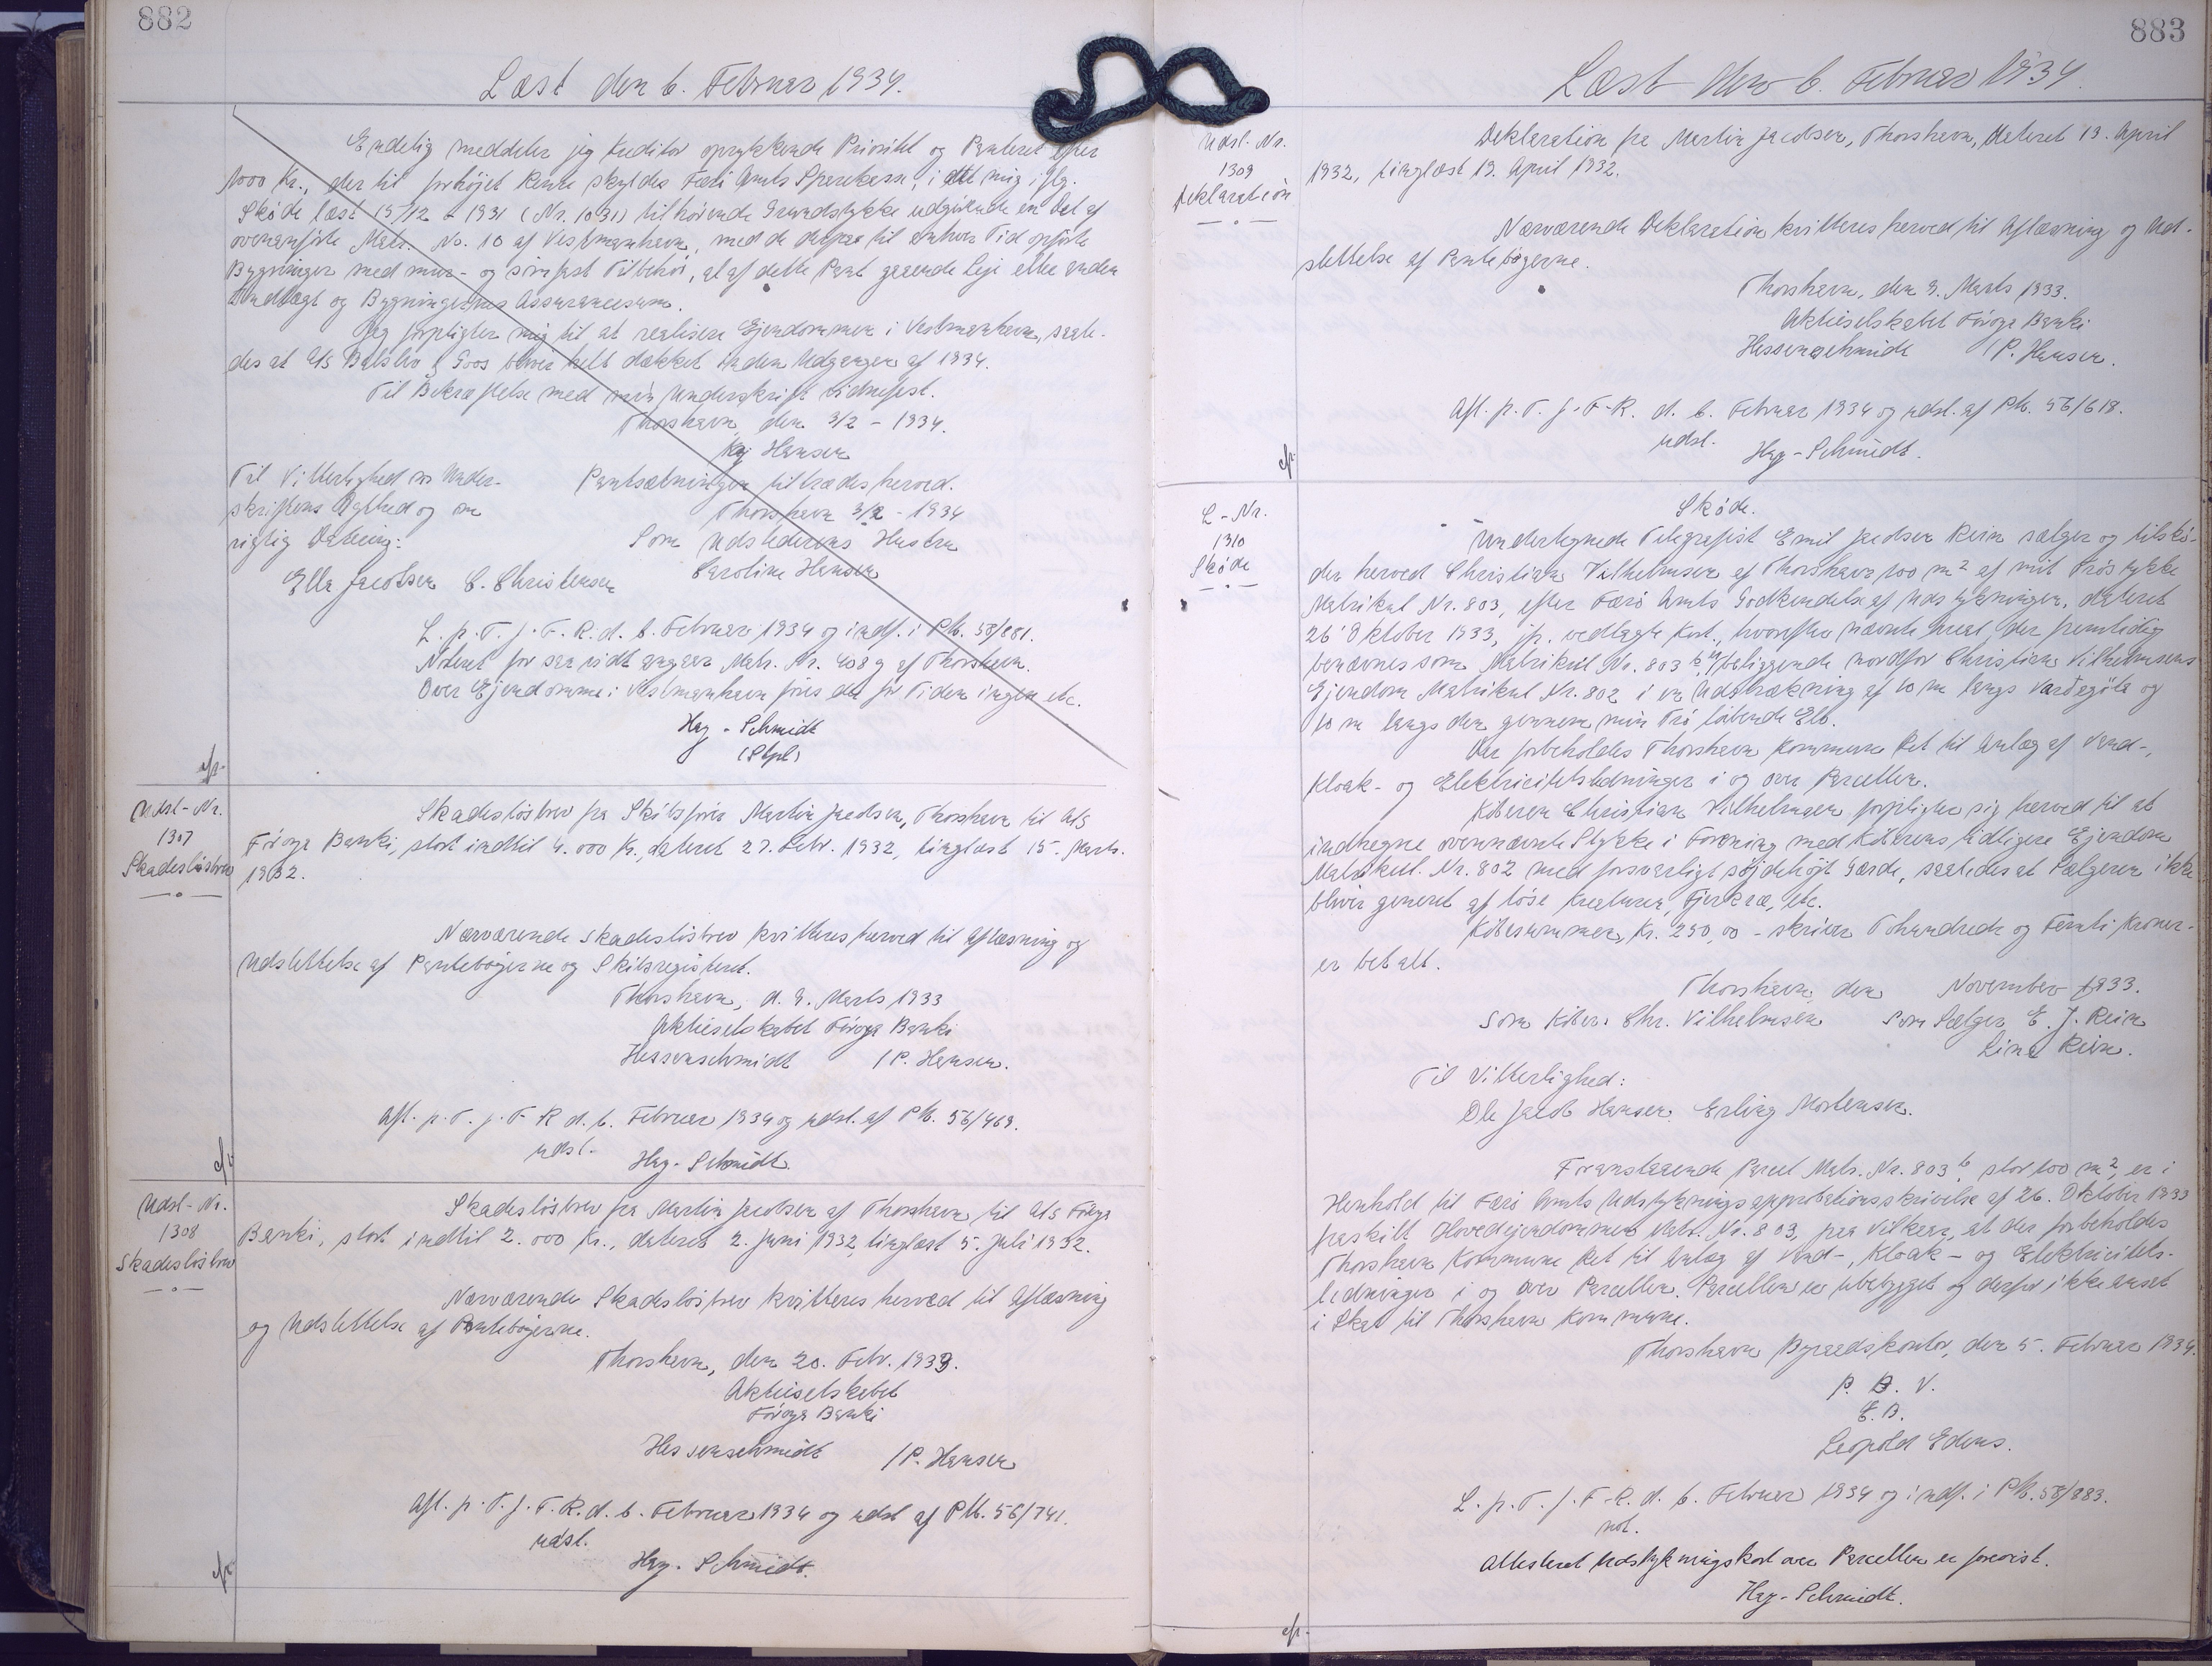 882
Læst den 6. Februar 1934.
Endelig meddeler jeg Kreditor oprykkende Prioritet og Panteret efter
1000 Kr., der til forhöjet Rente skyldes Færö Amts Sparekasse, i det mig iflg.
Sköde læst 15/12 - 1931 (Nr. 1031) tilhörende Grundstykke udgörende en Del af
ovenanförte Matr. No. 10 af Vestmanhavn, med de derpaa til enhver Tid opförte
Bygninger med mur- og sömfast Tilbehör, al af dette Pant gaaende Leje eller anden
Indtægt og Bygningernes Assurancesum.
Jeg forpligter mig til at realisere Ejendommen i Vestmanhavn, saale-
des at A/S Balslev & Goos bliver helt dækket inden Udgangen af 1934.
Til Bekræftelse med min Underskrift vidnefast.
Thorshavn, den 3/2 - 1934.
Kaj Hansen
Til Vitterlighed om Under-
skriftens Ægthed og om
rigtig Datering:
Ella Jacobsen C. Christensen
Pantsætningen tiltrædes herved.
Thorshavn 3/2 - 1934
Som Udstederens Hustru
Caroline Hansen
L. p. T. f. F. R. d. 6. Februar 1934 og indf. i Ptb. 58/881.
Noteret for saa vidt angaar Matr. Nr. 408 g af Thorshavn.
Over Ejendomme i Vestmanhavn föres der for Tiden ingen etc.
Hag-Schmidt
(Stpl)
Udsl-Nr.
1307
Skadeslösbrev
Skadeslösbrev fra Skibsförer Martin Jacobsen, Thorshavn til A/S
Föroya Banki, stort indtil 4.000 Kr., dateret 27. Febr. 1932, tinglæst 15. Marts.
1932.
Nærværende Skadeslösbrev kvitteres herved til Aflæsning og
Udslettelse af Pantebögerne og Skibsregistret.
Thorshavn, d. 9. Marts 1933
Aktieselskabet Föroya Banki
Hessenschmidt /P. Hansen.
Afl. p. T. f. F. R d. 6. Februar 1934 og udsl. af Ptb. 56/469.
udsl.
Hag-Schmidt
Udsl-Nr.
1308
Skadeslösbrev
Skadeslösbrev fra Martin Jacobsen af Thorshavn til A/S Föroya
Banki, stort indtil 2.000 Kr., dateret 2. Juni 1932, tinglæst 5. Juli 1932.
Nærværende Skadeslösbrev kvitteres herved til Aflæsning
og Udslettelse af Pantebögerne.
Thorshavn, den 20. Febr. 1933.
Aktieselskabet
Föroya Banki
Hessenschmidt /P. Hansen
Afl. p. T. f. F. R. d. 6. Februar 1934 og udsl af Ptb. 56/741.
udsl.
Hag-Schmidt.
883
Læst den 6. Februar 1934.
Udsl. Nr.
1309
Deklaration
Deklaration fra Martin Jacobsen, Thorshavn, dateret 13. April
1932, tinglæst 19. April 1932.
Nærværende Deklaration kvitteres herved til Aflæsning og Ud-
slettelse af Pantebögerne.
Thorshavn, den 9. Marts 1933.
Aktieselskabet Föroya Banki
Hessenschmidt /P. Hansen.
Afl. p. T. f. F. R. d. 6. Februar 1934 og udsl. af Ptb. 56/618.
udsl.
Hag-Schmidt.
L-Nr.
1310
Sköde
Sköde.
Undertegnede Telegrafist Emil Jacobsen Rein sælger og tilskö-
der herved Christian Vilhelmsen af Thorshavn 100 m² af mit Tröstykke
Matrikul Nr. 803, efter Færö Amts Godkendelse af Udstykningen, dateret
26' Oktober 1933, jfr. vedlagte Kort, hvorefter nævnte Areal, der fremtidig
benævnes som Matrikul Nr. 803 b, er beliggende nordfor Christian Vilhelmsens
Ejendom Matrikul Nr. 802 i en Udstrækning af 10 m langs Varðagöta og
10 m langs den gennem min Trö löbende Elv.
Der forbeholdes Thorshavn Kommune Ret til Anlæg af Vand-,
Kloak- og Elektricitetsledninger i og over Parcellen.
Köberen Christian Vilhelmsen forpligter sig herved til at
indhegne ovennævnte Stykke i Forening med Köberens tidligere Ejendom
Matrikul. Nr. 802 med forsvarligt söjdehöjt Gærde, saaledes at Sælgeren ikke
bliver generet af löse Kreaturer, Fjerkræ, etc.
Köbesummen, Kr. 250,00 - skriver Tohundrede og Femti Kroner -
er betalt.
Thorshavn, den November 1933.
Som Köber: Chr. Vilhelmsen Som Sælger E. J. Rein
Lina Rein.
Til Vitterlighed:
Ole Jacob Hansen. Erling Mortensen.
Foranstaaende Parcel Matr. Nr. 803 b, stor 100 m², er i
Henhold til Færö Amts Udstykningsapprobationsskrivelse af 26. Oktober 1933
fraskilt Hovedejendommen Matr. Nr. 803, paa Vilkaar, at der forbeholdes
Thorshavn Kommune Ret til Anlæg af Vand-, Kloak- og Elektricitets-
ledninger i og over Parcellen. Parcellen er ubebygget og derfor ikke ansat
i Skat til Thorshavn Kommune.
Thorshavn Byraadskontor, den 5. Februar 1934.
P. B. V.
E.B.
Leopold Edens.
L. p. T. f. F. R. d. 6. Februar 1934 og indf. i Ptb. 58/883.
not.
Attesteret Udstykningskort over Parcellen er forevist.
Hag-Schmidt.